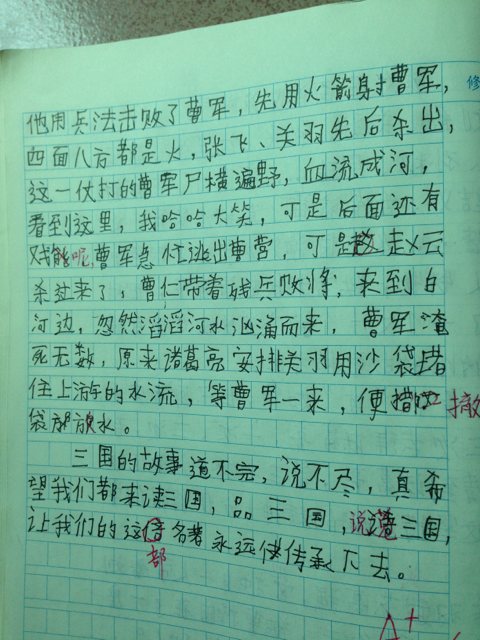 修
他用兵法击败了曹军，先用火箭射曹军，
四面八方都是火，张飞、关羽先后杀出，
这一仗打的曹军尸横遍野，血流成河，
看到这里，我哈哈大笑，可是后面还有
呢曹军急忙逃出曹营，可是赵云
杀过来了，曹仁带着残兵败将，来到白
河边，忽然滔滔河水汹涌而来，曹军淹
死无数，原来诸葛亮安排关羽用沙袋堵
住上游的水流，等曹军一来，便撤
袋放水。
三国的故事道不完，说不尽，真希
望我们都来读三国，品三国，说三国，
让我们的这部名著永远传承下去。
A+